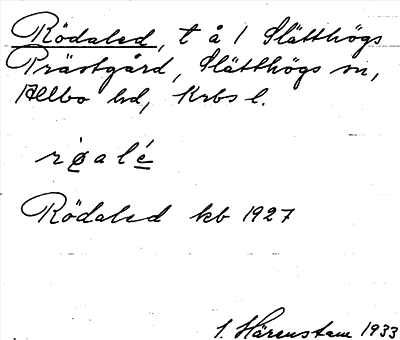 Rödaled, t å 1 Slätthögs
Prästgård, Slätthögs sn,
Allbo hd, Krbs l.
rø̀alé
Rödaled kb 1927
I. Härenstam 1933